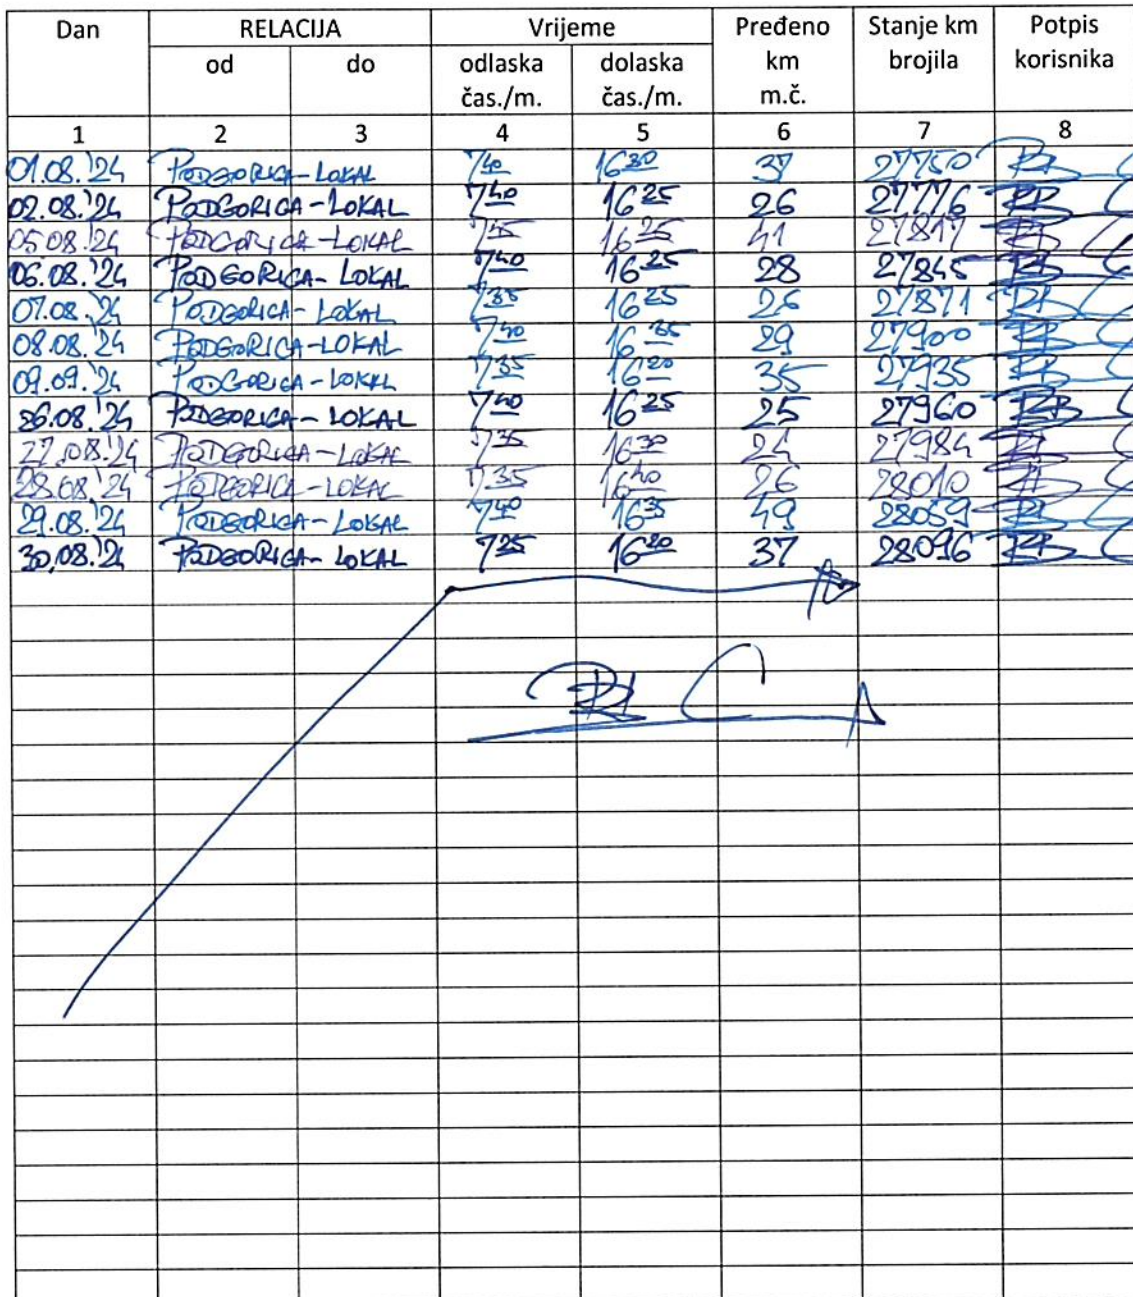 Dan RELACIJA Vrijeme Pređeno Stanje km Potpis
od do odlaska dolaska km brojila korisnika
čas./m. čas./m. m.č.
1 2 3 4 5 6 7 8
01.08.'24 PODGORICA-LOKAL 7 40 16 30 37 27750
02.08.'24 PODGORICA-LOKAL 7 40 16 25 26 27776
05.08.'24 PODGORICA-LOKAL 7 45 16 25 41 27817
06.08.'24 PODGORICA-LOKAL 7 40 16 25 28 27845
07.08.'24 PODGORICA-LOKAL 7 35 16 25 26 27871
08.08.'24 PODGORICA-LOKAL 7 40 16 35 29 27900
09.09.'24 PODGORICA-LOKAL 7 35 16 20 35 27935
26.08.'24 PODGORICA-LOKAL 7 40 16 25 25 27960
27.08.'24 PODGORICA-LOKAL 7 35 16 30 24 27984
28.08.'24 PODGORICA-LOKAL 7 35 16 40 26 28010
29.08.'24 PODGORICA-LOKAL 7 40 16 35 49 28059
30.08.'24 PODGORICA-LOKAL 7 35 16 20 37 28096